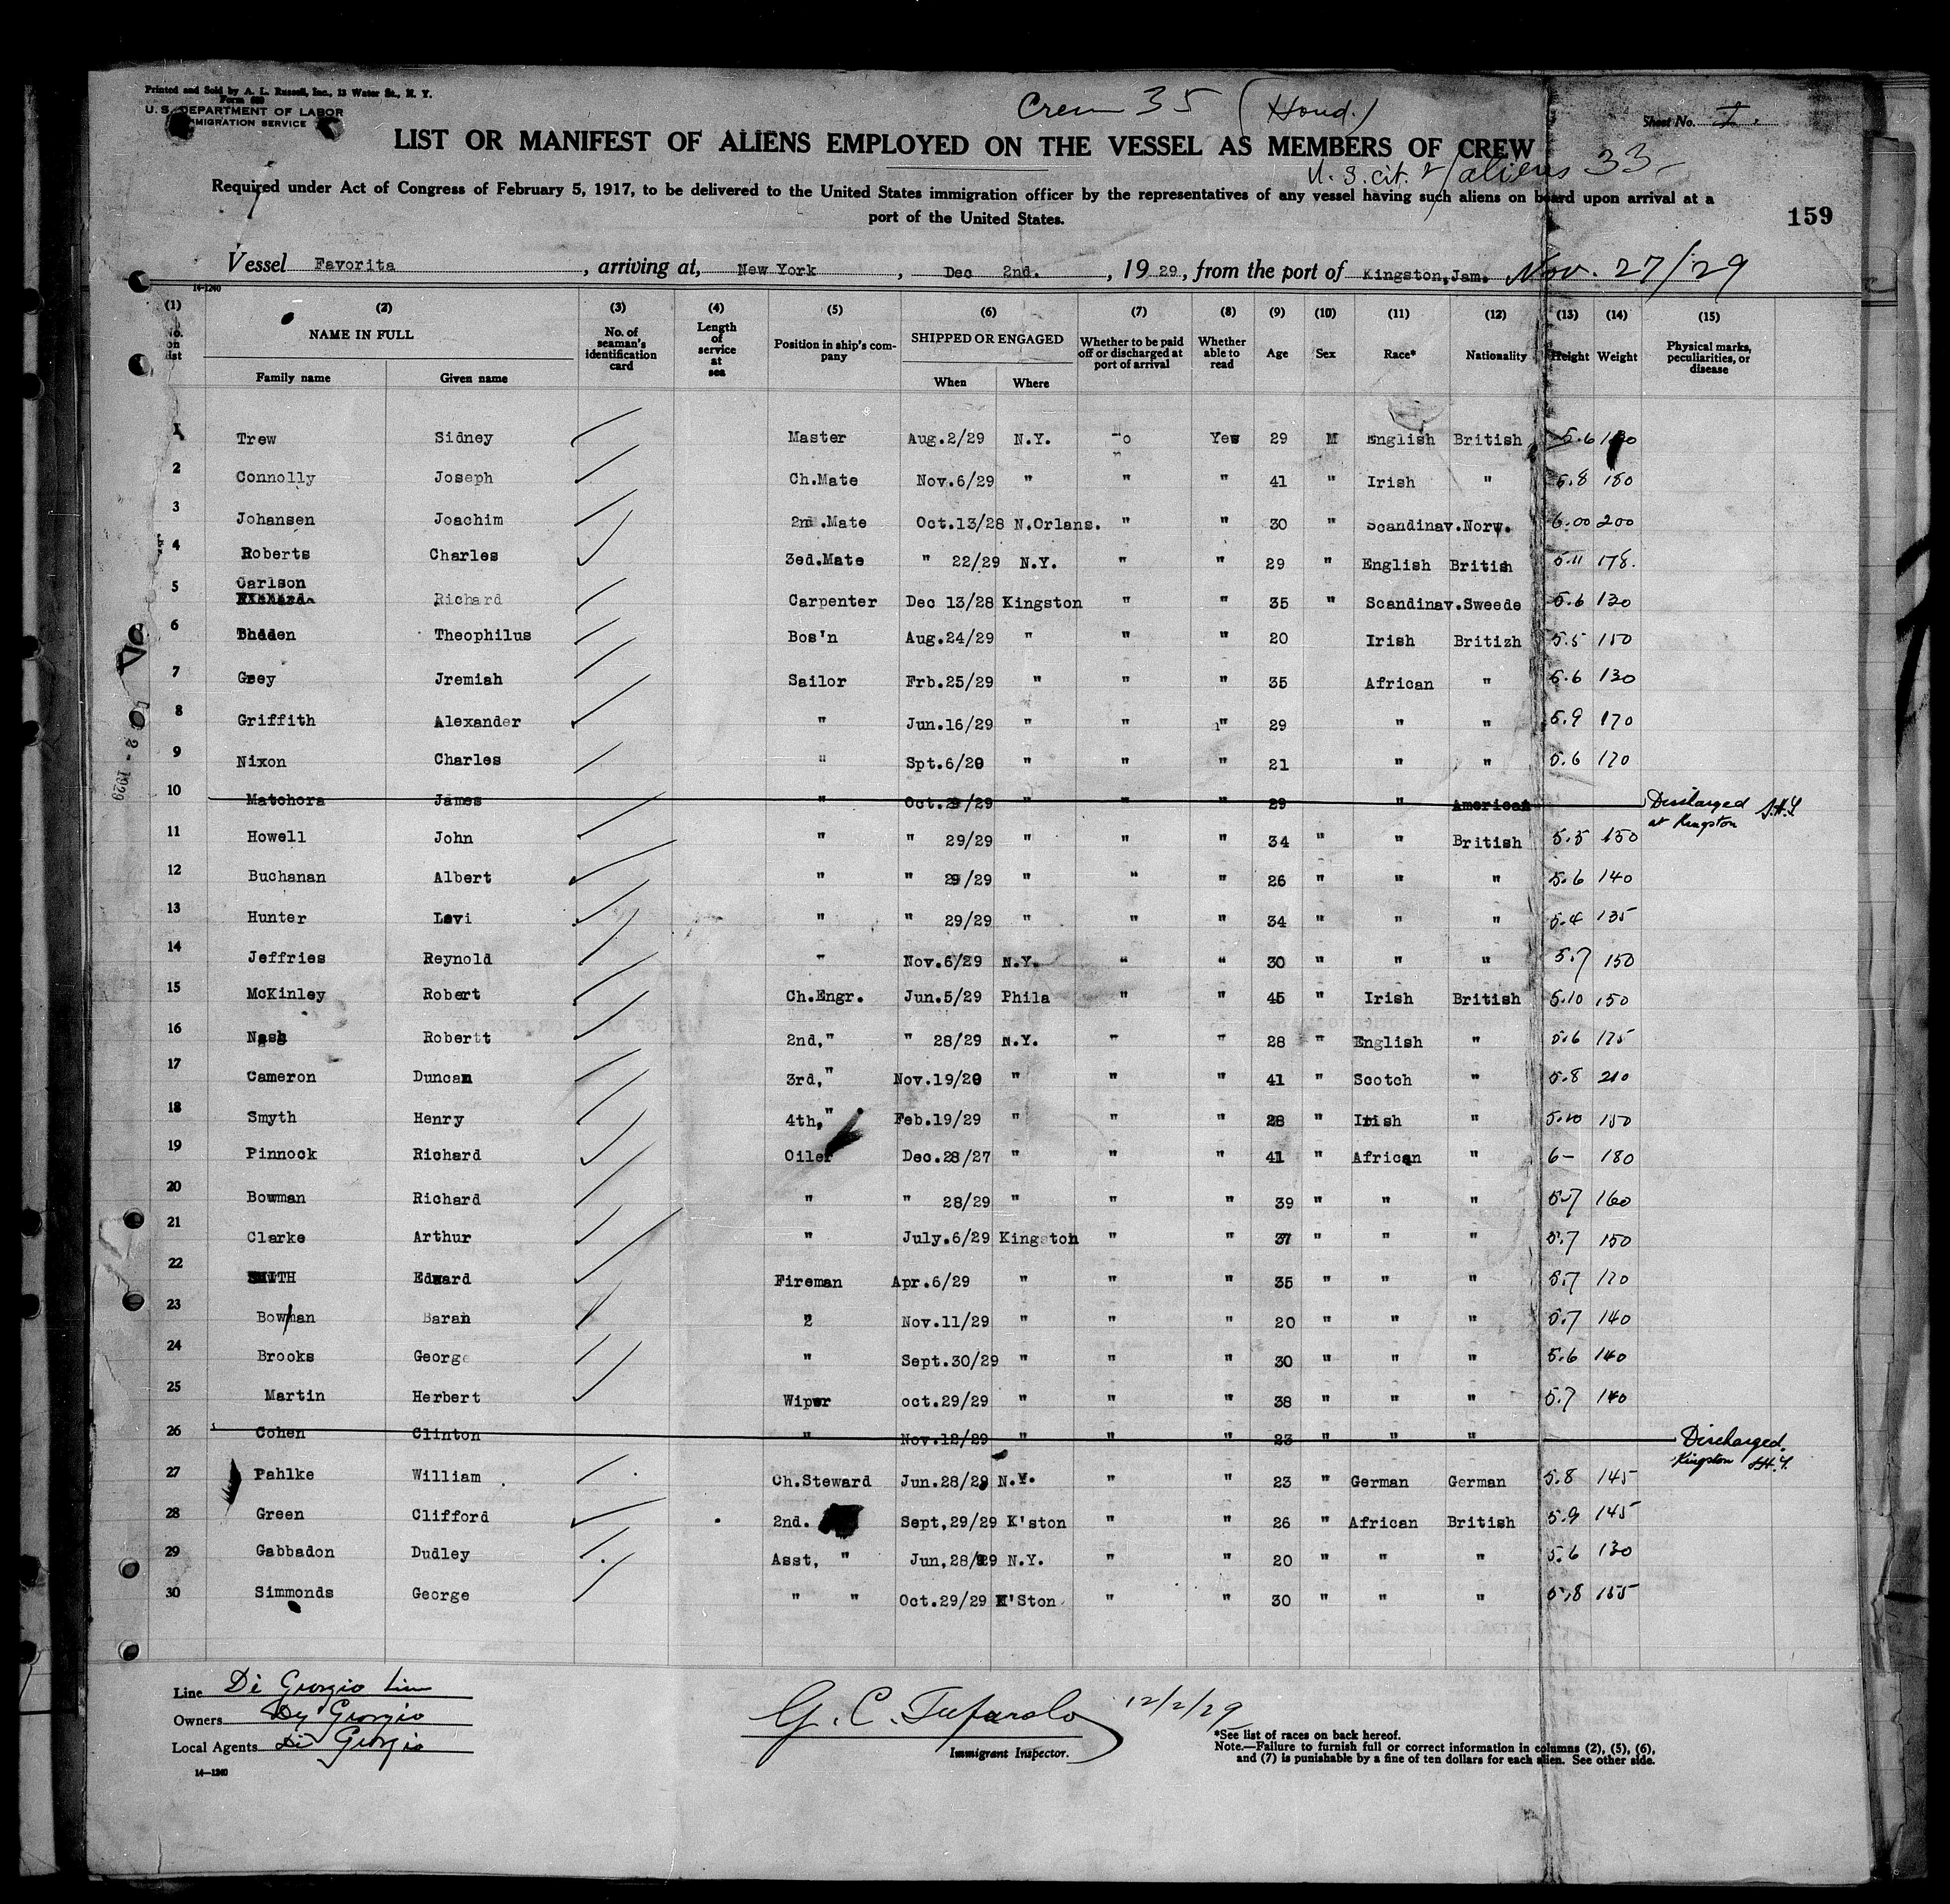 Printed and Sold by A. L. Russell, Inc., 13 Water St., N. Y.
Form 689
U. S. DEPARTMENT OF LABOR
IMMIGRATION SERVICE
Crew 35 (Hond.)
Sheet No. I.
LIST OR MANIFEST OF ALIENS EMPLOYED ON THE VESSEL AS MEMBERS OF CREW
U. S. cit. 2/ aliens 33
Required under Act of Congress of February 5, 1917, to be delivered to the United States immigration officer by the representatives of any vessel having such aliens on board upon arrival at a
port of the United States.
159
Vessel Favorita, arriving at, New York, Dec 2nd., 19 29, from the port of Kingston, Jam. Nov. 27/29
14-1240
(1) (2) (3) (4) (5) (6) (7) (8) (9) (10) (11) (12) (13) (14) (15)
No. on list NAME IN FULL Family name Given name No. of seaman's identification card Length of service at sea Position in ship's company SHIPPED OR ENGAGED When Where Whether to be paid off or discharged at port of arrival Whether able to read Age Sex Race* Nationality Height Weight Physical marks, peculiarities, or disease
1 Trew Sidney Master Aug.2/29 N.Y. No Yes 29 M English British 5.6
2 Connolly Joseph Ch.Mate Nov.6/29 " " " 41 " Irish " 5.8 180
3 Johansen Joachim 2nd.Mate Oct.13/28 N.Orlans. " " 30 " Scandinav.Norw. 6.00 200
4 Roberts Charles 3ed.Mate " 22/29 N.Y. " " 29 " English British 5.11 178.
5 Carlson Richard Carpenter Dec 13/28 Kingston " " 35 " Scandinav.Sweede 5.6 130
6 Theophilus Bos'n Aug.24/29 " " " 20 Irish Britizh 5.5 150
7 Grey Jremiah Sailor Frb.25/29 " " " 35 African " 5.6 130
8 Griffith Alexander " Jun.16/29 " " " 29 " " 5.9 170
9 Nixon Charles " Spt.6/29 " " " 21 " " 5.6 170
10 Matchora James " Oct.29/29 " " " 29 " American Discharged at Kingston
11 Howell John " " 29/29 " " " 34 " " British 5.5 150
12 Buchanan Albert " " 29/29 " " " 26 " " " 5.6 140
13 Hunter Levi " " 29/29 " " " 34 " " " 5.4 135
14 Jeffries Reynold " Nov.6/29 N.Y. " " 30 " " " 5.7 150
15 McKinley Robert Ch.Engr. Jun.5/29 Phila " " 45 " Irish British 5.10 150
16 Nash Robertt 2nd," " 28/29 N.Y. " " 28 " English " 5.6 175
17 Cameron Duncan 3rd," Nov.19/29 " " " 41 " Scotch " 5.8 210
18 Smyth Henry 4th," Feb.19/29 " " " 28 " Irish " 5.10 150
19 Pinnock Richard Oiler Dec.28/27 " " " 41 " African " 6- 180
20 Bowman Richard " " 28/29 " " " 39 " " " 5.7 160
21 Clarke Arthur " July.6/29 Kingston " " 37 " " " 5.7 150
22 SMITH Edward Fireman Apr.6/29 " " " 35 " " " 5.7 170
23 Bowman Barah 2 Nov.11/29 " " " 20 " " " 5.7 140
24 Brooks George " Sept.30/29 " " " 30 " " " 5.6 140
25 Martin Herbert Wiper oct.29/29 " " " 38 " " " 5.7 140
26 Cohen Clinton " Nov.12/29 " " " 23 " " " Discharged. Kingston
27 Pahlke William Ch.Steward Jun.28/29 N.Y. " " 23 " German German 5.8 145
28 Green Clifford 2nd. Sept,29/29 K'ston " " 26 " African British 5.9 145
29 Gabbadon Dudley Asst, " Jun,28/29 N.Y. " " 20 " " " 5.6 130
30 Simmonds George " " Oct.29/29 K'Ston " " 30 " " " 5.8 155
Line Di Giorgio Line
Owners Di Giorgio
Local Agents Di Giorgio
14-1240
G. C. Tufarolo 12/2/29
Immigrant Inspector.
*See list of races on back hereof.
Note.—Failure to furnish full or correct information in columns (2), (5), (6),
and (7) is punishable by a fine of ten dollars for each alien. See other side.